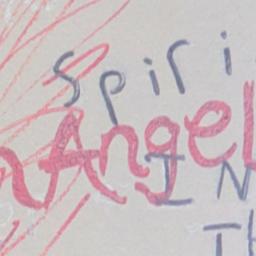 Spiri
Angel
IN
Th